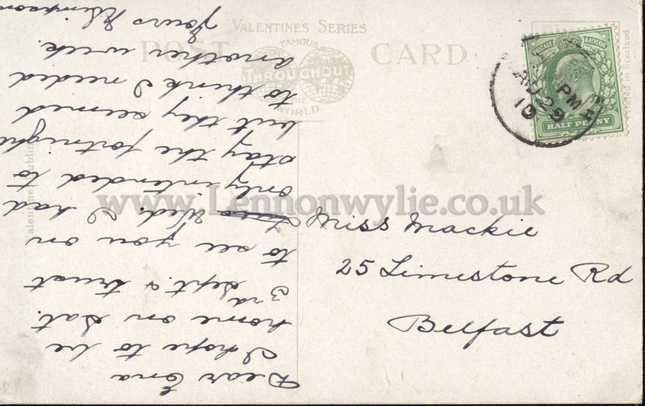 VALENTINE'S SERIES
POST CARD
FAMOUS
THROUGHOUT
THE
WORLD
AU 29
10
PM
HALF PENNY
Miss Mackie
25 Limestone Rd
Belfast
Dear Ena
I hope to be
home on Sat.
3rd Sept. & trust
to see you on
Wed. I had
only intended to
stay the fortnight
but they seemed
to think I needed
another week.
Yours
www.Lennonwylie.co.uk